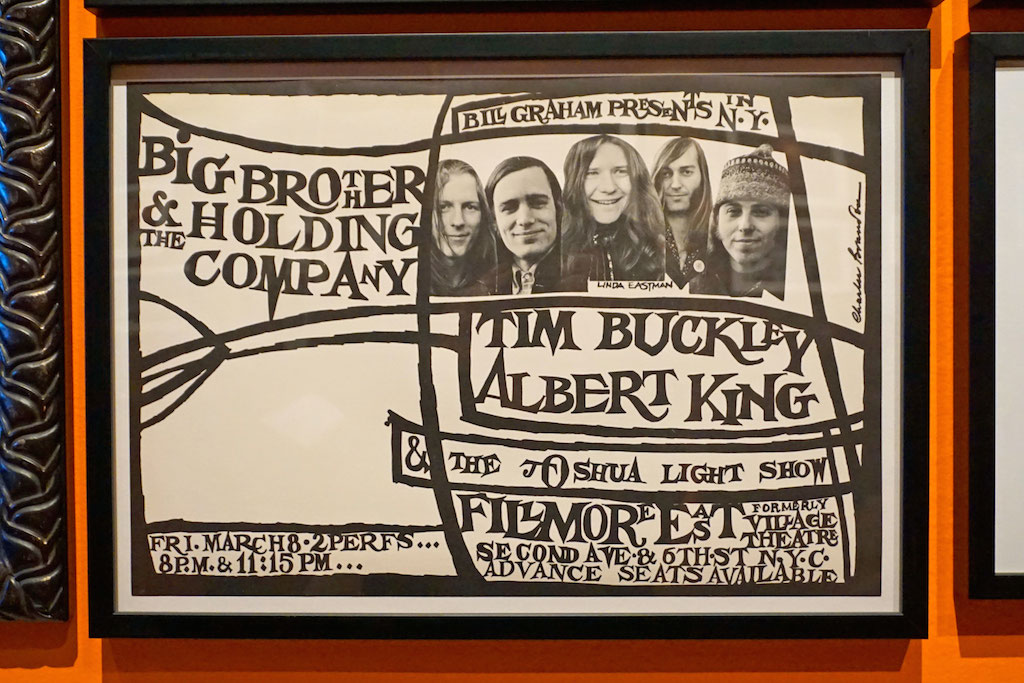 BILL GRAHAM PRESENTS IN
N.Y.
BIG BROTHER
& HOLDING
THE
COMPANY
LINDA EASTMAN
TIM BUCKLEY
ALBERT KING
& THE JOSHUA LIGHT SHOW
FILLMORE EAST
FORMERLY
VILLAGE
THEATRE
SECOND AVE. & 6TH. ST N.Y.C.
ADVANCE SEATS AVAILABLE
FRI. MARCH 8 · 2 PERFS...
8 P.M. & 11:15 PM...